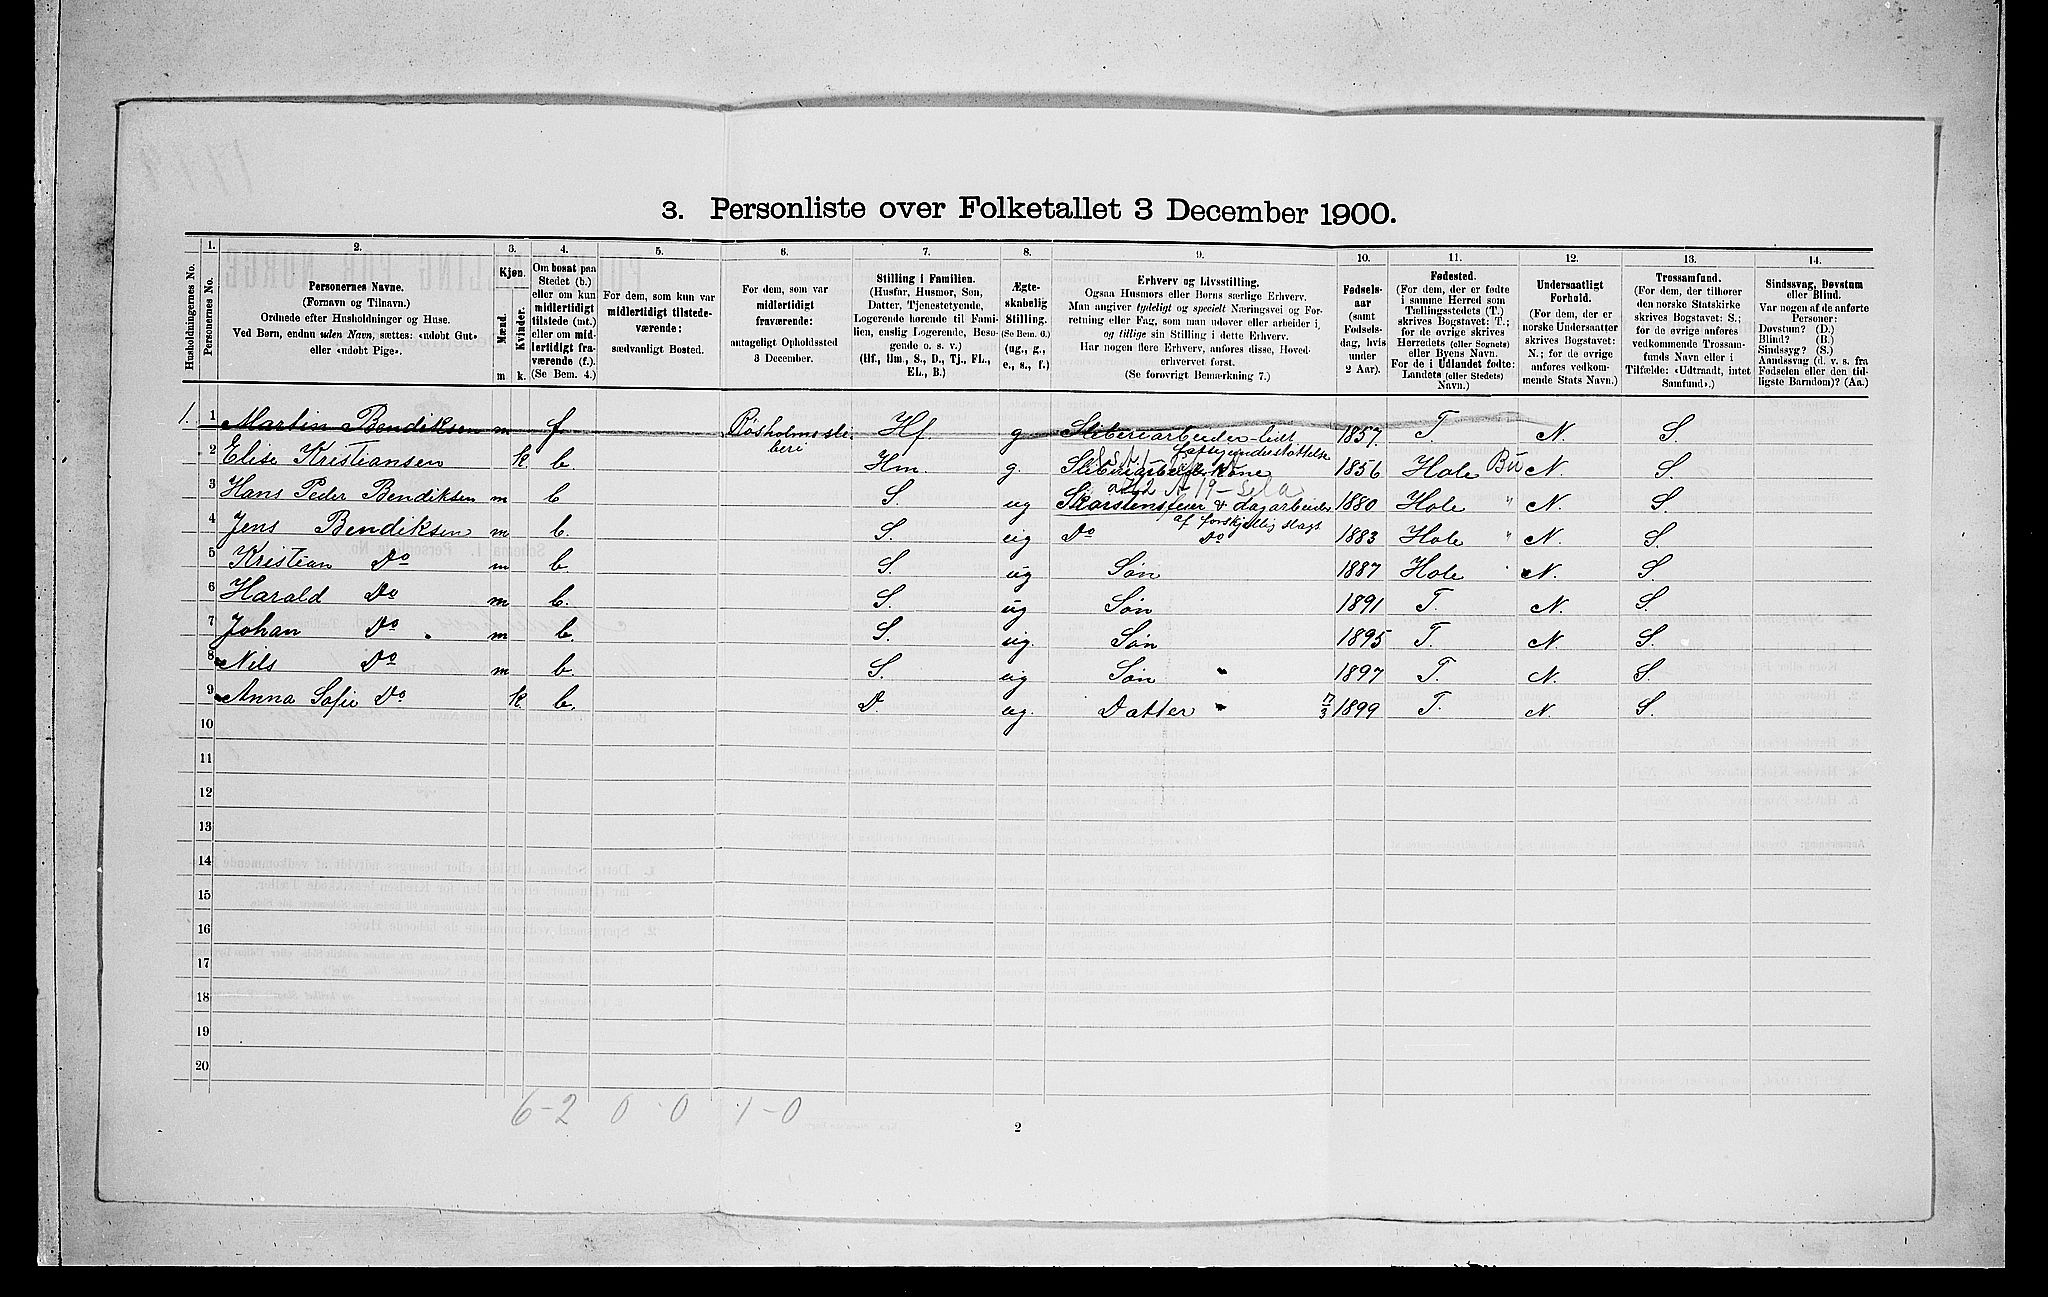 3. Personliste over Folketallet 3 December 1900.
1. 2. 3. 4. 5. 6. 7. 8. 9. 10. 11. 12. 13. 14.
Husholdningernes No.
Personernes No.
Personernes Navne.
(Fornavn og Tilnavn.)
Ordnede efter Husholdninger og Huse.
Ved Børn, endnu uden Navn, sættes: «udøbt Gut»
eller «udøbt Pige».
Kjøn.
Mænd.
Kvinder.
m k.
Om bosat paa
Stedet (b.)
eller om kun
midlertidigt
tilstede (mt.)
eller om mid-
lertidigt fra-
værende (f.).
(Se Bem. 4.)
For dem, som kun var
midlertidigt tilstede-
værende:
sædvanligt Bosted.
For dem, som var
midlertidigt
fraværende:
antageligt Opholdssted
3 December.
Stilling i Familien.
(Husfar, Husmor, Søn,
Datter, Tjenestetyende,
Logerende hørende til Fami-
lien, enslig Logerende, Besø-
gende o. s. v.)
(Hf., Hm., S., D., Tj., FL.,
EL., B.)
Ægte-
skabelig
Stilling.
(Se Bem. 6.)
(ug., g.,
e., s., f.)
Erhverv og Livsstilling.
Ogsaa Husmors eller Børns særlige Erhverv.
Man angiver tydeligt og specielt Næringsvei og For-
retning eller Fag, som man udøver eller arbeider i,
og tillige sin Stilling i dette Erhverv.
Har nogen flere Erhverv, anføres disse, Hoved-
erhvervet først.
(Se forøvrigt Bemerkning 7.)
Fødsels-
aar
(samt
Fødsels-
dag, hvis
under
2 Aar).
Fødested.
(For dem, der er fødte
i samme Herred som
Tællingsstedets (T.)
skrives Bogstavet: T.;
for de øvrige skrives
Herredets (eller Sognets)
eller Byens Navn.
For de i Udlandet fødte:
Landets (eller Stedets)
Navn.)
Undersaatligt
Forhold.
(For dem, der er
norske Undersaatter
skrives Bogstavet:
N.; for de øvrige
anføres vedkom-
mende Stats Navn.)
Trossamfund.
(For dem, der tilhører
den norske Statskirke
skrives Bogstavet: S.;
for de øvrige anføres
vedkommende Trossam-
funds Navn eller i
Tilfælde: «Udtraadt, intet
Samfund».)
Sindssvag, Døvstum
eller Blind.
Var nogen af de anførte
Personer:
Døvstum? (D.)
Blind? (B.)
Sindssyg? (S.)
Aandssvag (d. v. s. fra
Fødselen eller den tid-
ligste Barndom)? (Aa.)
1. 1 Martin Bendiksen m f Hf. g Sliberiarbeider 1857. T. N. S.
beri
fattigunderstøttelse
2 Elise Kristiansen k b Hm. g. Sliberiarbeider kone 1856 Hole Bu N. S.
3 Hans Peder Bendiksen m b S. ug Skorstensfeier & dagarbeider 1880 Hole " N. S.
af forskjellig slags
4 Jens Bendiksen m b. S. ug Do Do 1883 Hole " N. S.
5 Kristian Do m b. S. ug Søn 1887 Hole N. S.
6 Harald Do m b. S. ug Søn 1891 T. N. S.
7 Johan Do m b. S. ug. Søn 1895 T. N. S.
8 Nils Do m b. S. ug Søn 1897 T. N. S.
9 Anna Sofie Do k b. D. ug. Datter 7/3 1899 T. N. S.
10
11
12
13
14
15
16
17
18
19
20
6-2 0-0 1-0
2